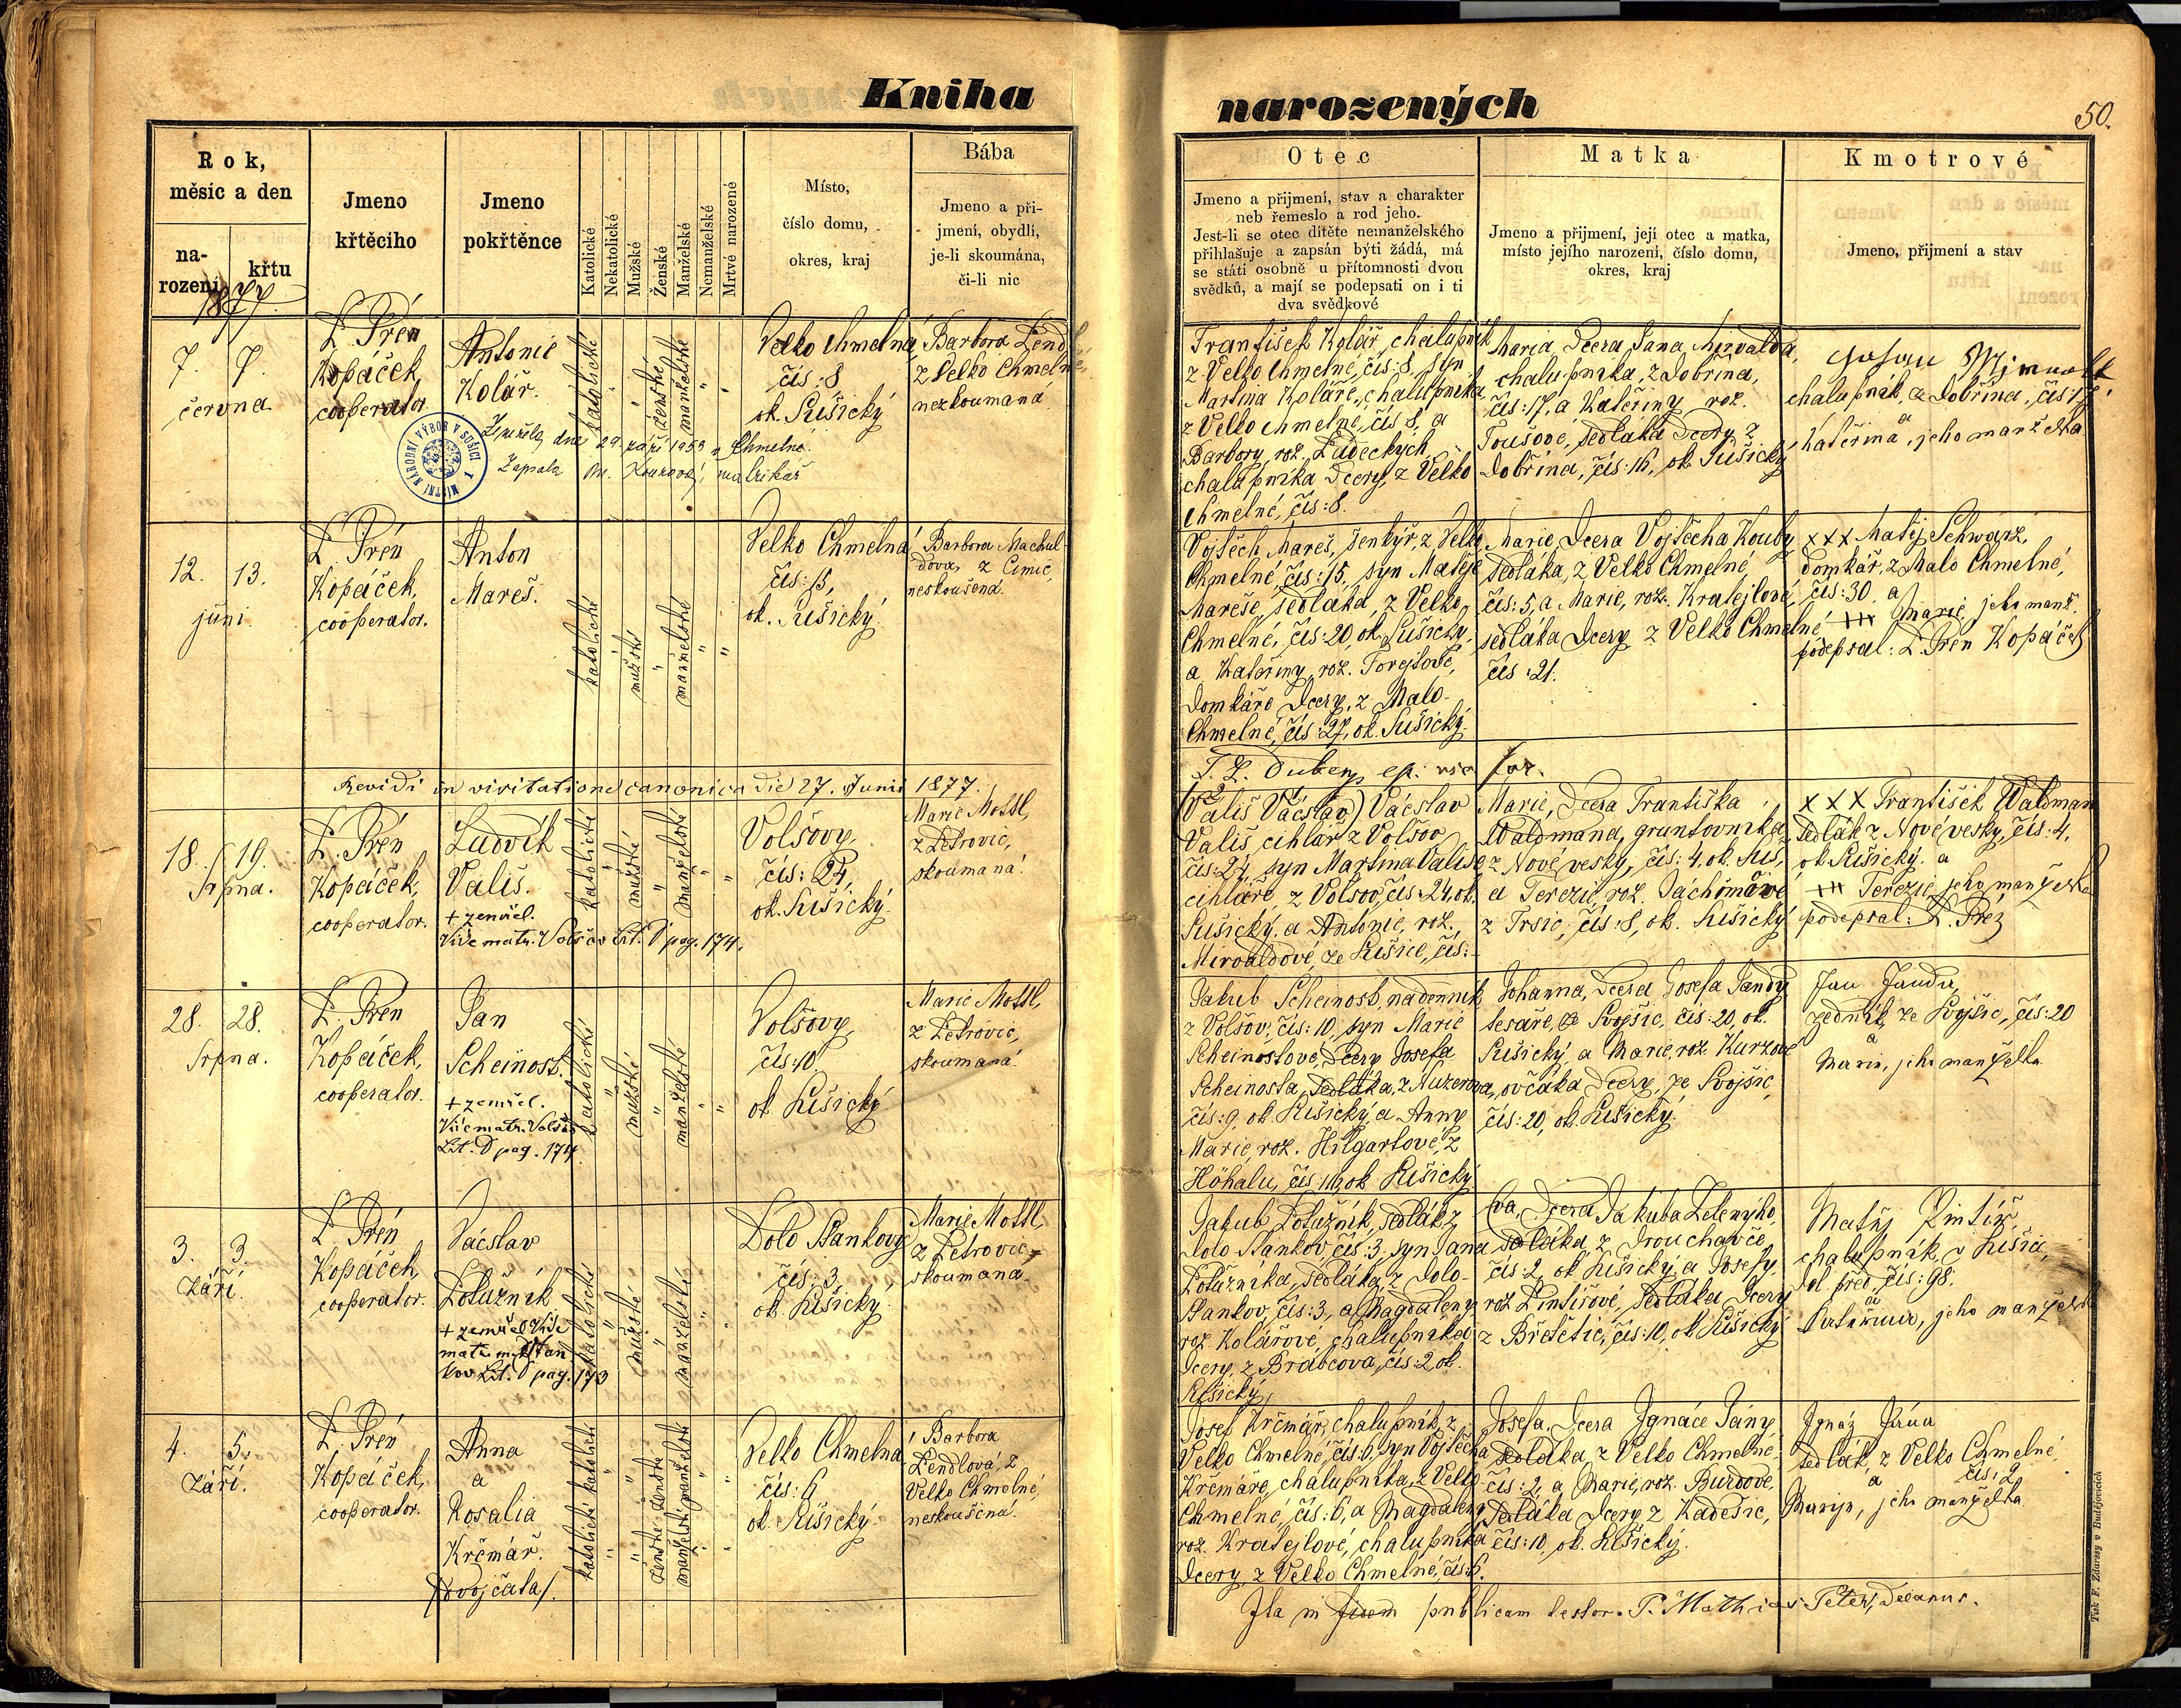 Kniha
narozených
50.
Rok,
měsíc a den
na-
rození
křtu
1877.
Jmeno
křtěcího
Jmeno
pokřtěnce
Katolické
Nekatolické
Mužské
Ženské
Manželské
Nemanželské
Mrtvé narozené
Místo,
číslo domu,
okres, kraj
Bába
Jmeno a při-
jmení, obydlí,
je-li skoumána,
či-li nic
Otec
Jmeno a přijmení, stav a charakter
neb řemeslo a rod jeho.
Jest-li se otec dítěte nemanželského
přihlašuje a zapsán býti žádá, má
se státi osobně u přítomnosti dvou
svědků, a mají se podepsati on i ti
dva svědkové
Matka
Jmeno a přijmení, její otec a matka,
místo jejího narození, číslo domu,
okres, kraj
Kmotrové
Jmeno, přijmení a stav
7. 7.
června
Kopáček,
cooperator
Antonie
Kolář.
katolické
ženské
manželské
Velko Chmelná
čís: 8
ok. Sušický
Barbora
z Velko Chmelné
nezkoumaná
Zemřela dne 29 září 1953 v Chmelné.
Zapsala matrikář
MÍSTNÍ NÁRODNÍ VÝBOR V SUŠICI
František Kolář, chalupník
z Velko Chmelné, čís: 8, syn
Martina Koláře, chalupníka
z Velko Chmelné, čís 8, a
Barbory, rož.
chalupníka dcery, z Velko
Chmelné, čís: 8.
Maria, dcera Jana
chalupníka, z Dobřína,
čís: 17, a Kateřiny rož.
Toušové, sedláka dcery z
Dobřína, čís: 16, ok. Sušický
chalupník, z Dobřína, čís 17.
a
Kateřina, jeho manželka
12. 13.
juni
Kopáček,
cooperator.
Anton
Mareš.
katolické
mužské
manželské
Velko Chmelná
čís: 15,
ok. Sušický
Barbora Machul-
dova, z Čimic,
neskoušená.
Vojtěch Mareš, šenkýř, z Velko
Chmelné, čís: 15, syn Matěje
Mareše, sedláka, z Velko
Chmelné, čís: 20, ok. Sušický,
a Kateřiny, rož.
domkáře dcery, z Malo-
Chmelné, čís: 27, ok. Sušický.
Marie, dcera Vojtěcha Kouby
sedláka, z Velko Chmelné
čís: 5, a Marie, rož. Kratejlové,
sedláka dcery z Velko Chmelné
čís: 21.
xxx Matěj Schwarz,
domkář, z Malo Chmelné,
čís: 30. a
+++ Marie, jeho manž.
podepsal: Kopáček
Revidi in visitatione canonica die 27. Junii 1877.
18. 19.
Srpna.
Kopáček,
cooperator.
Ludvík
Vališ.
+ zemřel.
Vide matr. Volšov Lit. D pag. 174.
katolické
mužské
manželské
Volšovy,
čís: 24,
ok. Sušický
Marie Mottl,
z Petrovic,
skoumaná.
(Vališ Václav) Václav
Vališ cihlář z Volšov
čís: 24, syn Martina Vališe,
cihláře, z Volšov, čís: 24, ok.
Sušický, a Antonie, rož.
Mirvaldové, ze Sušice, čís:
Marie, dcera Františka
Waldmana, gruntovníka,
z Nové vesky, čís: 4. ok. Suš,
a Terezie, rož. Jáchimové
z Trsic, čís: 8, ok. Sušický
xxx František Waldman
sedlák z Nové vesky, čís: 4,
ok. Sušický. a
+++ Terezie, jeho manželka
podepsal:
28. 28.
Srpna.
Kopáček,
cooperator.
Jan
Scheinost.
+ zemřel.
Vide matr. Volšov
Lit. D pag. 174
katolické
mužské
manželské
Volšovy,
čís: 10.
ok. Sušický
Marie Mottl,
z Petrovic,
skoumaná
Jakub Scheinost, nádenník
z Volšov, čís: 10, syn Marie
Scheinostové, dcery Josefa
Scheinosta, sedláka, z Nuzerova,
čís: 9, ok. Sušický, a Anny
Marie, rož. Hilgartové, z
ok Sušický
Johanna, dcera Josefa Jandy
tesaře, ze Svojšic, čís: 20, ok.
Sušický, a Marie, rož. Kurzové
ovčáka dcery, ze Svojšic,
čís: 20, ok. Sušický.
Jan Janda,
zedník, ze Svojšic, čís: 20
a
Marie, jeho manželka
3. 3.
Září.
Kopáček,
cooperator.
Václav
Potužník
+ zemřel Vide
katolické
mužské
manželské
Dolo Stankovy
čís: 3,
ok. Sušický
Marie Mottl,
z Petrovic,
skoumaná.
Jakub Potužník, sedlák z
Dolo Stankov čís: 3. syn Jana
Potužníka, sedláka, z Dolo-
Stankov, čís: 3, a Magdaleny
rož. Kolářové, chalupníka
dcery, z Brabcova, čís: 2 ok.
Sušický
Eva, dcera Jakuba Zelenýho,
sedláka z Drouhavče
čís: 2, ok Sušický, a Josefy,
rož. Pintířové, sedláka dcery
z Břetětic, čís: 10, ok. Sušický
Matěj Pintíř,
chalupník, v Sušici,
dol. před. čís: 98.
a
Kateřina, jeho manželka
4. 5.
Září.
Kopáček,
cooperator.
Anna
a
Rosalia
Krčmář.
/dvojčata/.
katolické katolické
ženské ženské
manželské manželské
Velko Chmelná
čís: 6
ok. Sušický.
Barbora
Lendlová, z
Velko Chmelné,
neskoušená.
Josef Krčmář, chalupník, z
Velko Chmelné, čís: 6, syn Vojtěcha
Krčmáře, chalupníka, z Velko
Chmelné, čís: 6, a Magdaleny
rož. Kratejlové, chalupníka
dcery, z Velko Chmelné, čís: 6.
Josefa, dcera Ignáce Jány
sedláka z Velko Chmelné
čís: 2, a Marie, rož. Burdové,
sedláka dcery, z Kadešic,
čís: 10, ok. Sušický.
Ignáz Jána
sedlák, z Velko Chmelné,
čís: 2
a
Marya, jeho manželka
Ita in fidem publicam testor. P. Mathias Peter, Decanus.
Tisk F. Zdarssy v Budějovicích